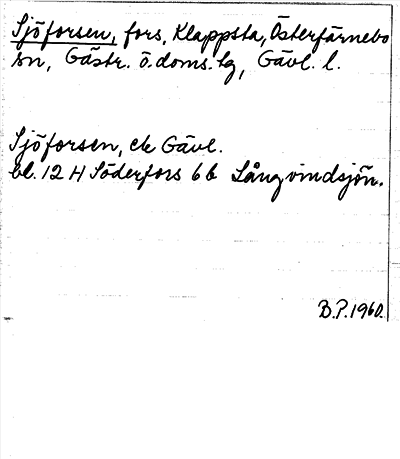 Sjöforsen, fors, Klappsta, Österfärnebo
sn, Gästr. ö. doms. tg, Gävl. l.
Sjöforsen, ek Gävl.
bl. 12 H Söderfors 6 b Långvindsjön.
B.P. 1960.